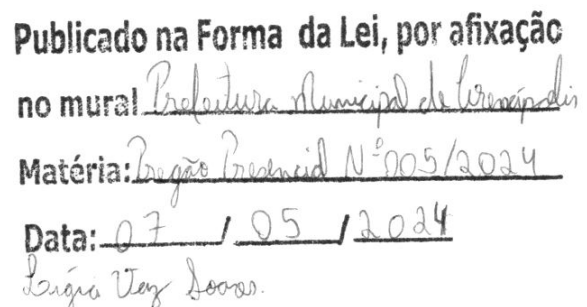 Publicado na Forma da Lei, por afixação
no mural Prefeitura Municipal de Pirenópolis
Matéria: Pregão Presencial Nº 005/2024
Data: 07 / 05 / 2024
Lígia Vaz